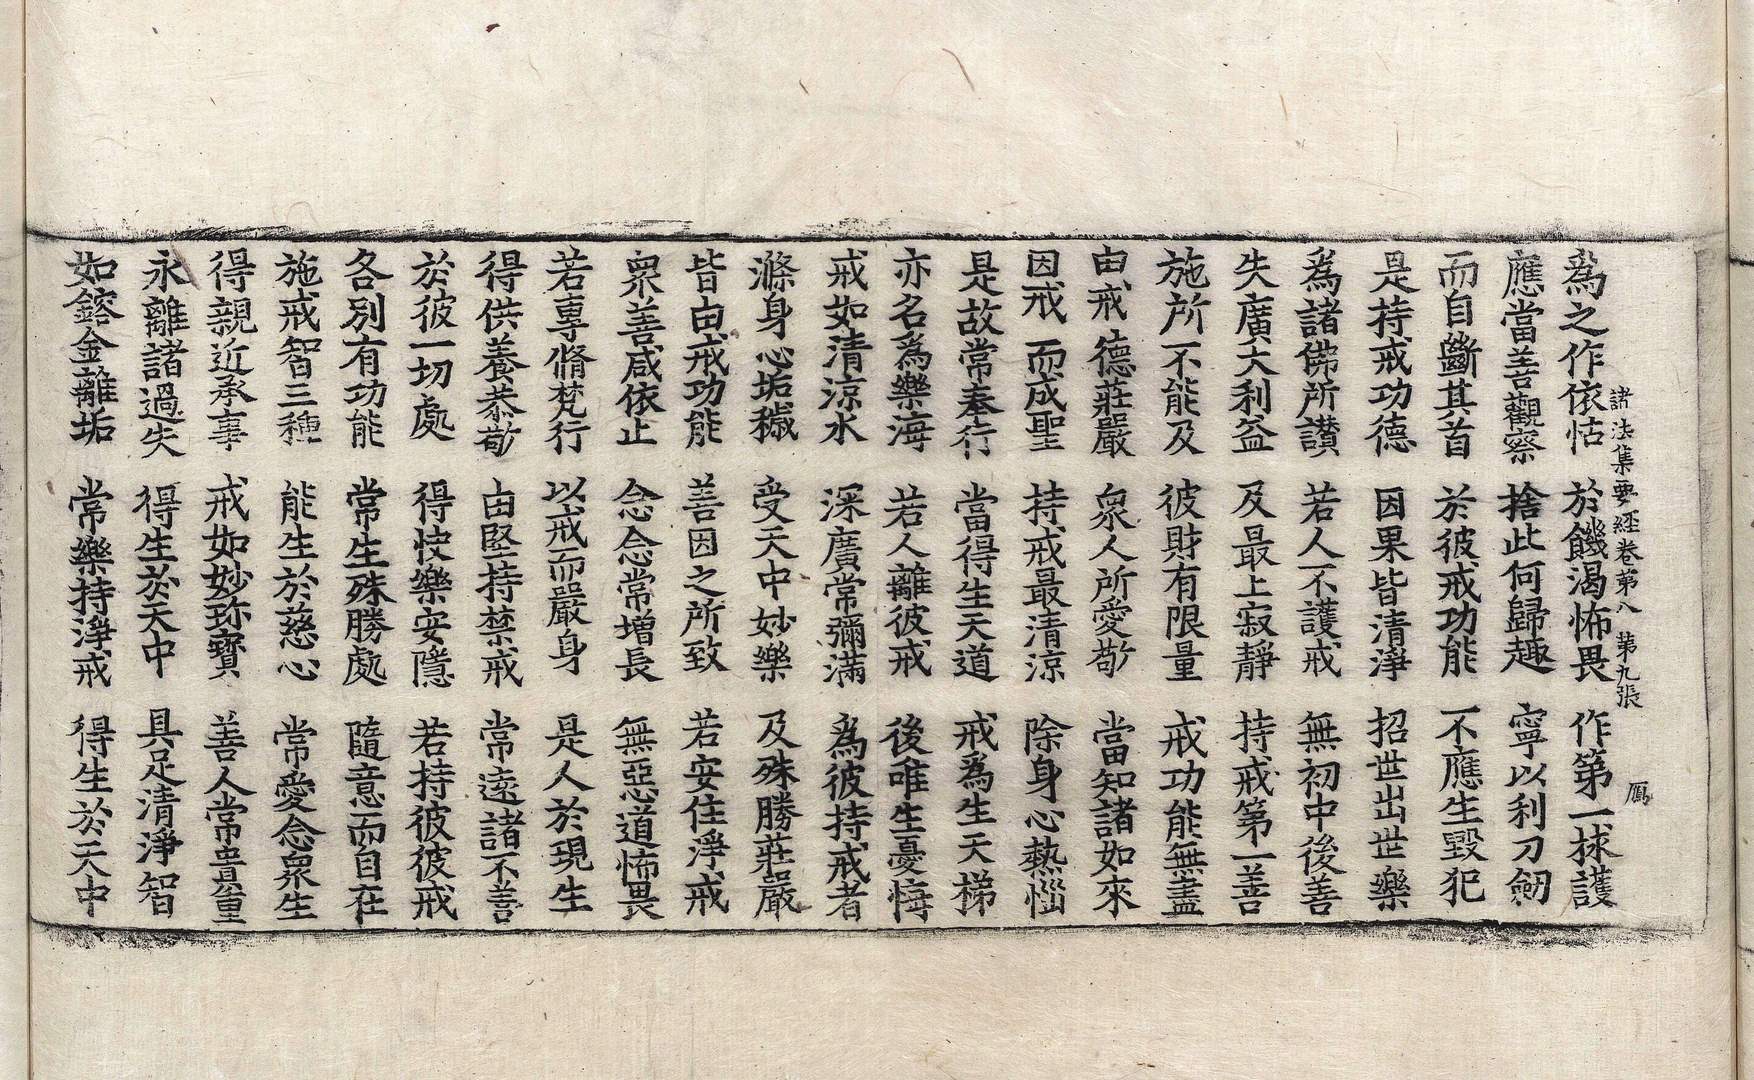 諸法集要經卷第八　第九張　鳳
爲之作依怙　於饑渴怖畏　作第一捄護
應當善觀察　捨此何歸趣　寧以利刀劒
而自斷其首　於彼戒功能　不應生毀犯
是持戒功德　因果皆清淨　招世出世樂
爲諸佛所讃　若人不護戒　無初中後善
失廣大利益　及最上寂靜　持戒第一善
施所不能及　彼財有限量　戒功能無盡
由戒德莊嚴　衆人所愛敬　當知諸如來
因戒而成聖　持戒最清涼　除身心熱惱
是故常奉行　當得生天道　戒為生天梯
亦名為樂海　若人離彼戒　後唯生憂悔
戒如清涼水　深廣常彌滿　為彼持戒者
滌身心垢穢　受天中妙樂　及殊勝莊嚴
皆由戒功能　善因之所致　若安住淨戒
衆善咸依止　念念常增長　無惡道怖畏
若專脩梵行　以戒而嚴身　是人於現生
得供養恭敬　由堅持禁戒　常遠諸不善
於彼一切處　得快樂安隱　若持彼彼戒
各別有功能　常生殊勝處　隨意而自在
施戒智三種　能生於慈心　常愛念衆生
得親近承事　戒如妙珎寶　善人常貴重
永離諸過失　得生於天中　具足清淨智
如鎔金離垢　常樂持淨戒　得生於天中